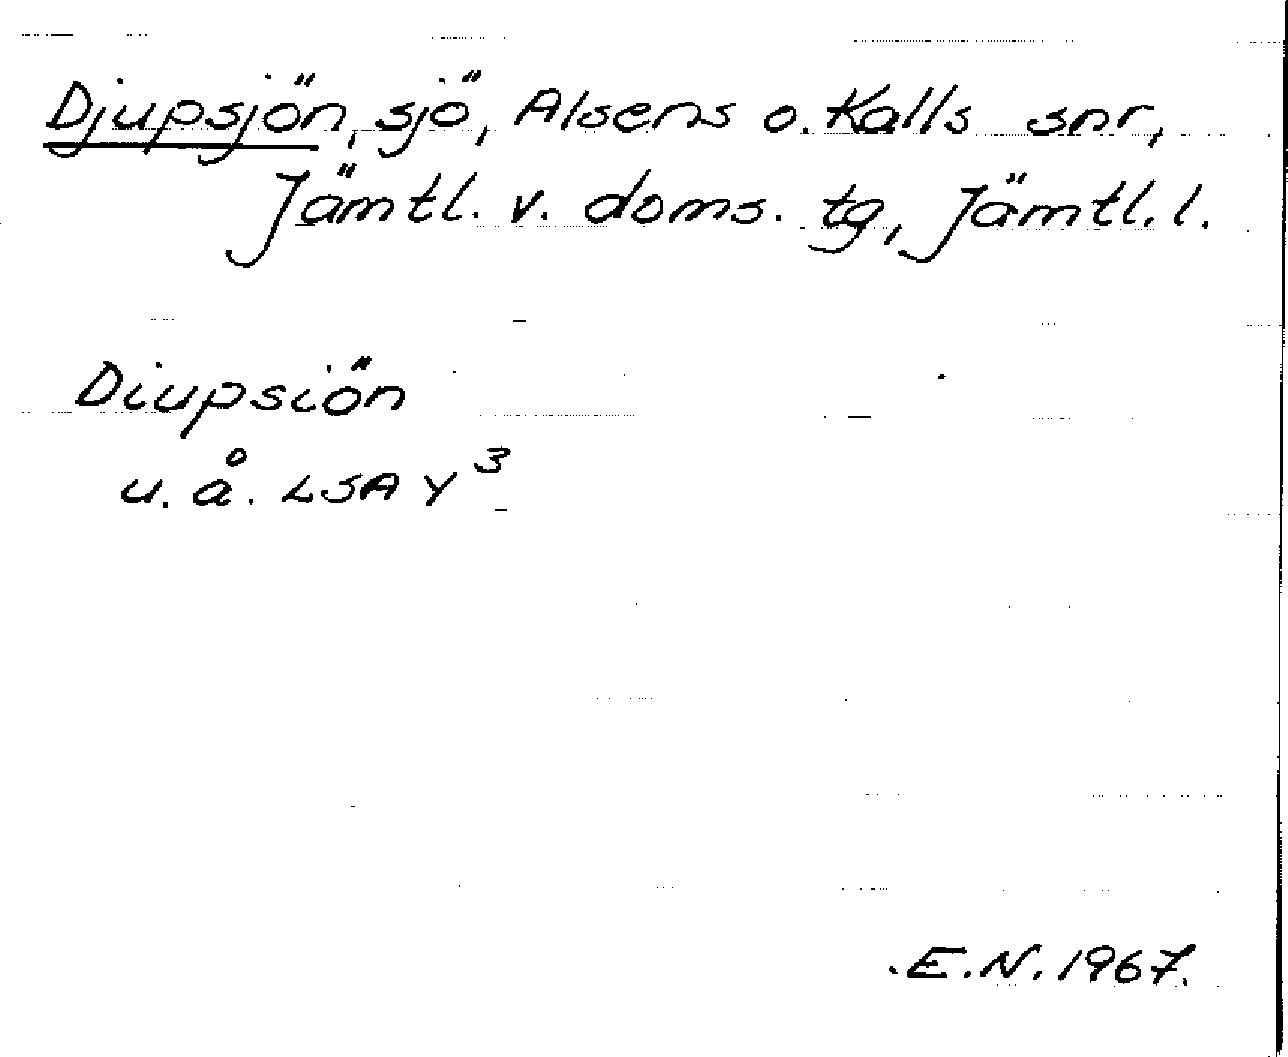 Djupsjön, sjö, Alsens o. Kalls snr,
Jämtl. v. doms. tg, Jämtl. l.
Diupsiön
u. å. LSA Y³
E.N. 1967.